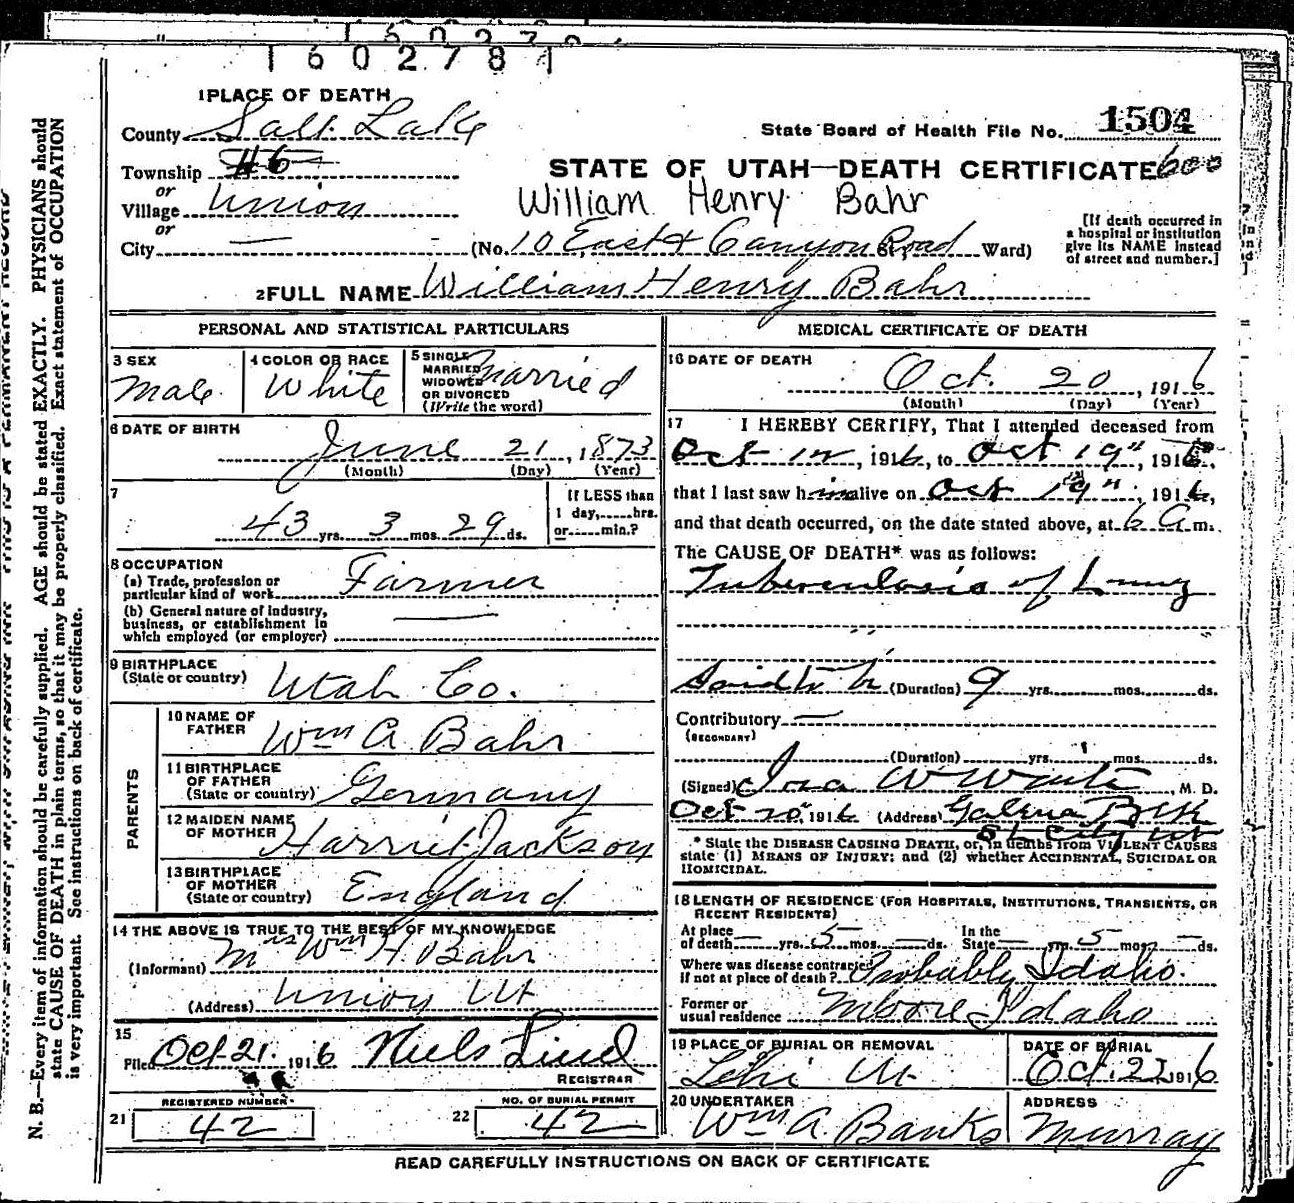 1602781
1 PLACE OF DEATH
County Salt Lake
State Board of Health File No. 1504
Township #6
STATE OF UTAH—DEATH CERTIFICATE 600
or
Village Union
William Henry Bahr
or
City — (No. 10 East & Canyon Road St., Ward)
[If death occurred in a hospital or institution give its NAME instead of street and number.]
2 FULL NAME William Henry Bahr
PERSONAL AND STATISTICAL PARTICULARS
3 SEX
Male
4 COLOR OR RACE
White
5 SINGLE
MARRIED
WIDOWED
OR DIVORCED
(Write the word)
Married
6 DATE OF BIRTH
June 21, 1873
(Month) (Day) (Year)
7
43 yrs. 3 mos. 29 ds.
If LESS than
1 day,......hrs.
or......min.?
8 OCCUPATION
(a) Trade, profession or
particular kind of work Farmer
(b) General nature of industry,
business, or establishment in
which employed (or employer) —
9 BIRTHPLACE
(State or country) Utah Co.
PARENTS
10 NAME OF
FATHER Wm A Bahr
11 BIRTHPLACE
OF FATHER
(State or country) Germany
12 MAIDEN NAME
OF MOTHER Harriet Jackson
13 BIRTHPLACE
OF MOTHER
(State or country) England
14 THE ABOVE IS TRUE TO THE BEST OF MY KNOWLEDGE
(Informant) Mrs Wm H Bahr
(Address) Union Ut
15
Filed Oct 21. 1916 Niels Lind
REGISTRAR
REGISTERED NUMBER
21 42
NO. OF BURIAL PERMIT
22 42
MEDICAL CERTIFICATE OF DEATH
16 DATE OF DEATH
Oct. 20, 1916
(Month) (Day) (Year)
17 I HEREBY CERTIFY, That I attended deceased from
Oct 12, 1916, to Oct 19", 1916,
that I last saw him alive on Oct 19", 1916,
and that death occurred, on the date stated above, at 6 a m.
The CAUSE OF DEATH* was as follows:
Tuberculosis of Lung
Said to be (Duration) 9 yrs. mos. ds.
Contributory —
(SECONDARY)
(Duration) yrs. mos. ds.
(Signed) Ira W White, M. D.
Oct 20", 1916 (Address) Galena Blk
SL City Ut
* State the DISEASE CAUSING DEATH, or, in deaths from VIOLENT CAUSES
state (1) MEANS OF INJURY; and (2) whether ACCIDENTAL, SUICIDAL OR
HOMICIDAL.
18 LENGTH OF RESIDENCE (FOR HOSPITALS, INSTITUTIONS, TRANSIENTS, OR
RECENT RESIDENTS)
At place
of death — yrs. 5 mos. — ds.
In the
State — yrs. 5 mos. — ds.
Where was disease contracted
if not at place of death? Probably Idaho.
Former or
usual residence Moore Idaho
19 PLACE OF BURIAL OR REMOVAL
Lehi Ut
DATE OF BURIAL
Oct. 22, 1916
20 UNDERTAKER
Wm A. Banks
ADDRESS
Murray
READ CAREFULLY INSTRUCTIONS ON BACK OF CERTIFICATE
N. B.—Every item of information should be carefully supplied. AGE should be stated EXACTLY. PHYSICIANS should
state CAUSE OF DEATH in plain terms, so that it may be properly classified. Exact statement of OCCUPATION
is very important. See instructions on back of certificate.